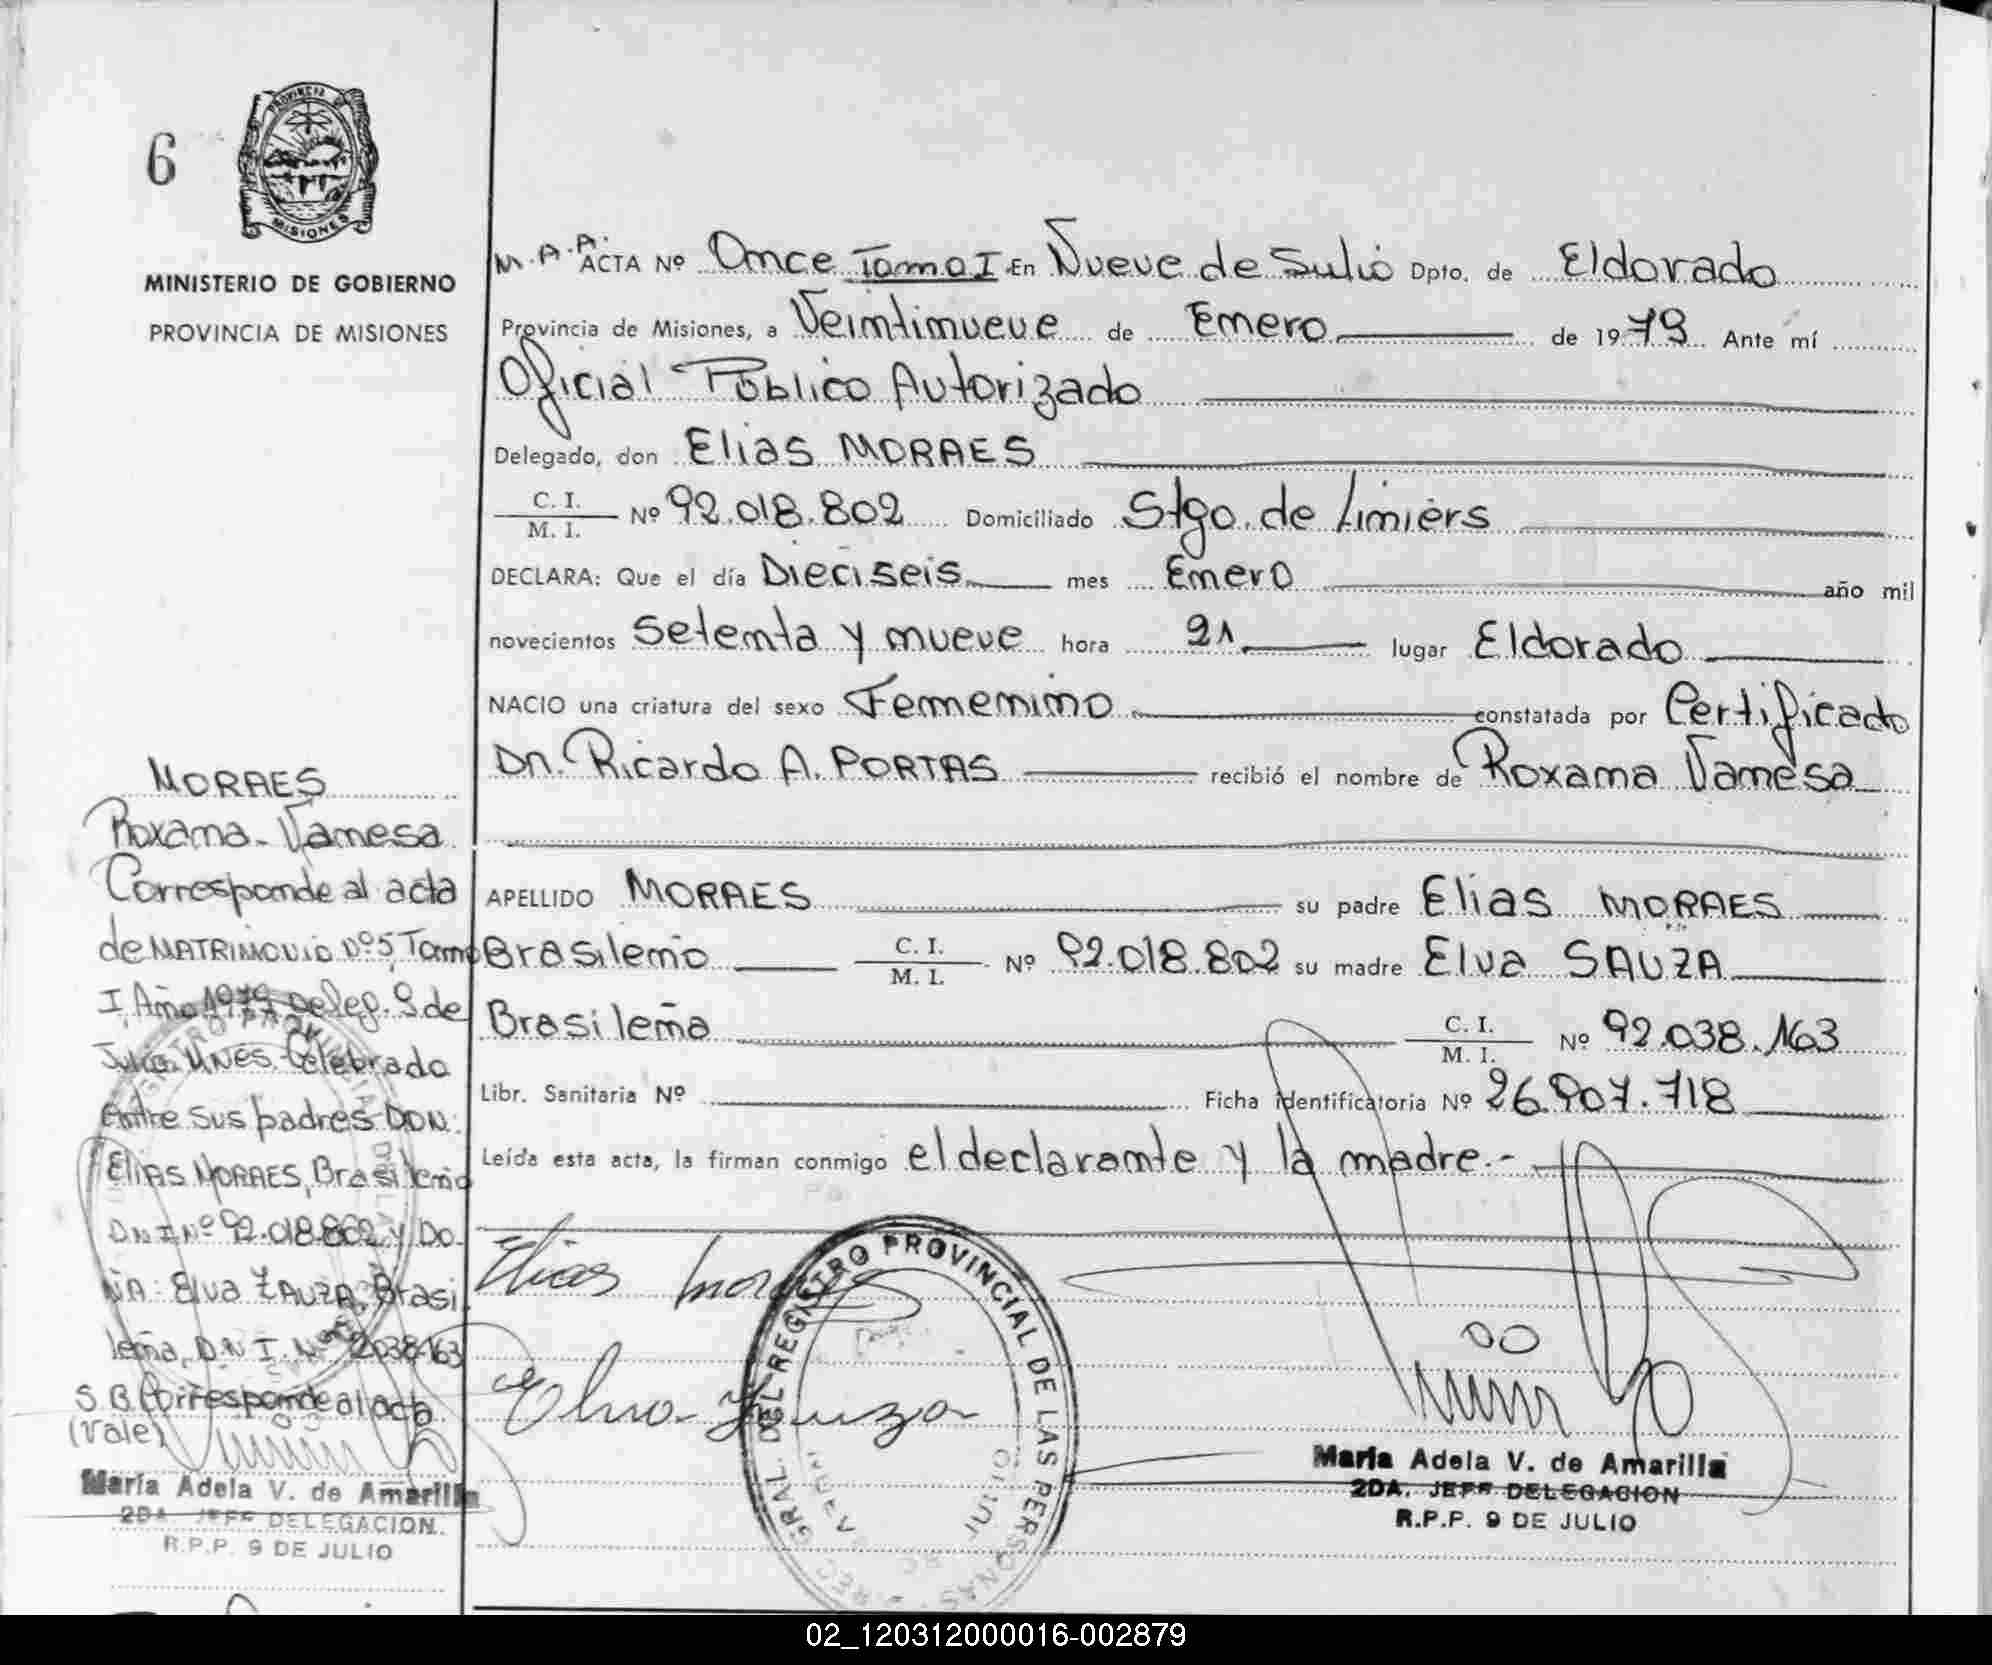 6
PROVINCIA DE
MISIONES
MINISTERIO DE GOBIERNO
PROVINCIA DE MISIONES
M.A.A. ACTA Nº Once Tomo I En Nueve de Julio Dpto. de Eldorado
Provincia de Misiones, a Veintinueve de Enero de 1979 Ante mí
Oficial Público Autorizado
Delegado, don Elias MORAES
C. I.
M. I. Nº 92.018.802 Domiciliado Stgo. de Liniers
DECLARA: Que el día Dieciseis mes Enero año mil
novecientos Setenta y nueve hora 21 lugar Eldorado
NACIO una criatura del sexo Femenino constatada por Certificado
Dr. Ricardo A. PORTAS recibió el nombre de Roxana Vanesa
APELLIDO MORAES su padre Elias MORAES
Brasileño C. I.
M. I. Nº 92.018.802 su madre Elva SAUZA
Brasileña C. I.
M. I. Nº 92.038.163
Libr. Sanitaria Nº Ficha identificatoria Nº 26.907.718
Leída esta acta, la firman conmigo el declarante y la madre.-
Elias Moraes
Elva Zauza
GRAL. DEL REGISTRO PROVINCIAL DE LAS PERSONAS
María Adela V. de Amarilla
2DA. JEFE DELEGACION
R.P.P. 9 DE JULIO
MORAES
Roxana Vanesa
Corresponde al acta
de MATRIMONIO Nº 5, Tomo
I, Año 1979 Deleg. 9 de
Julio Mnes. Celebrado
Entre sus padres DON:
Elias MORAES, Brasileño
DNI Nº 92.018.802 y Do-
ÑA: Elva ZAUZA, Brasi
leña, D.N.I. Nº 92.038.163
S.B. Corresponde al acta
(Vale)
María Adela V. de Amarilla
2DA. JEFE DELEGACION
R.P.P. 9 DE JULIO
02_120312000016-002879